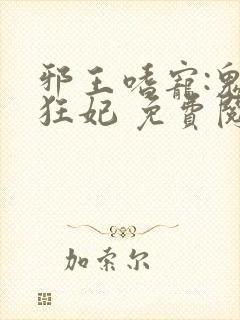 邪王嗜寵:鬼
狂妃 免費閱
加索尔